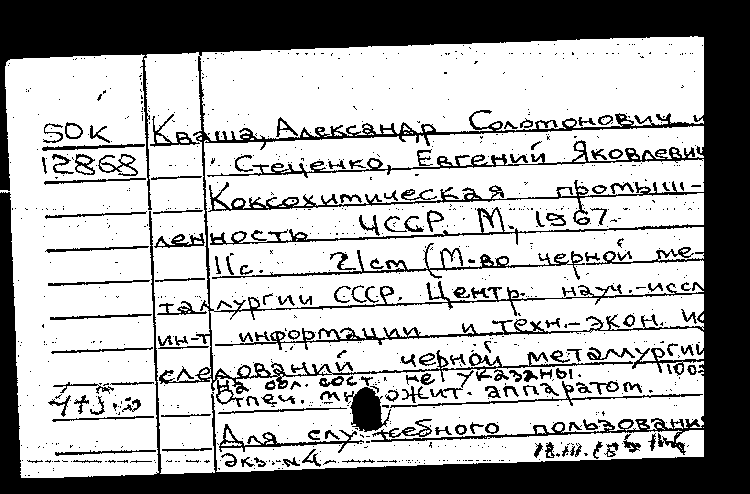 SOK Кваша, Александр Соломонович и
12868 Стеценко, Евгений Яковлевич
Коксохимическая промыш-
ленность ЧССР. М., 1967.
11с. 21cm (М-во черной ме-
таллургии СССР. Центр. науч.-иссл
ин-т информации и техн.-экон. ис
следований черной металлургии
на обл. сост. не указаны.
Отпеч. множит. аппаратом.
Для служебного пользования
Экз. N 4